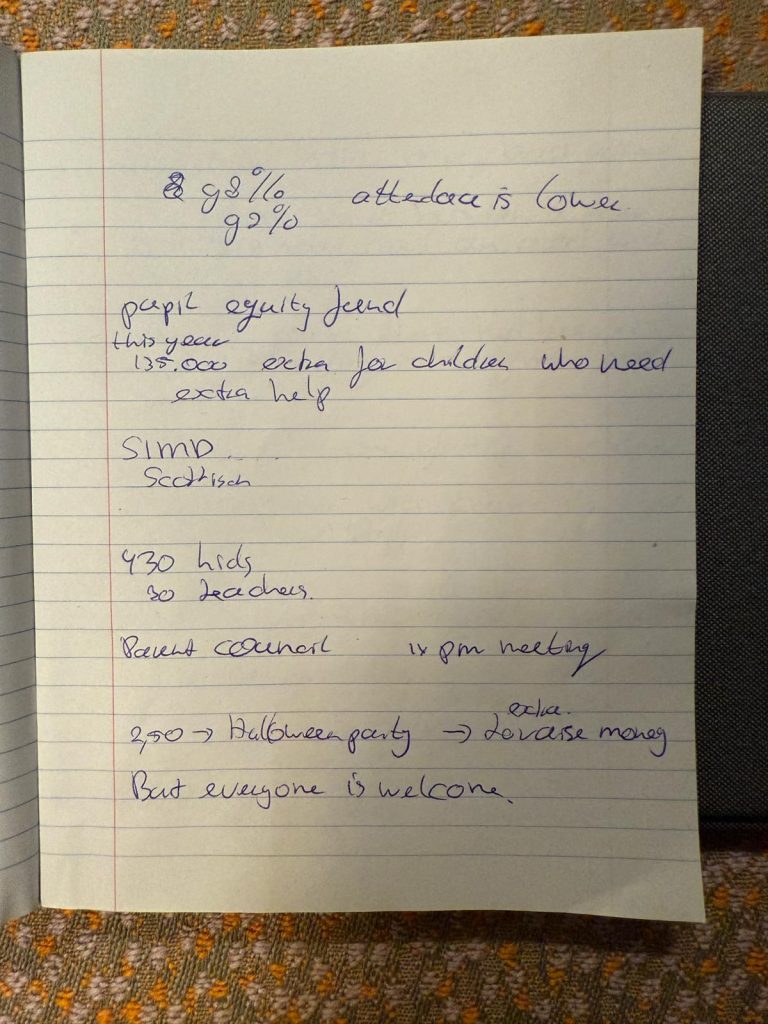 98% attedace is lower.
92%
pupil equity fund
this year
135.000 extra for children who need
extra help
SIMD....
Scottisch
430 kids
30 teachers.
Parent council 1x pm meeting
extra.
2,50 → Halloween party → to raise money
But everyone is welcome.